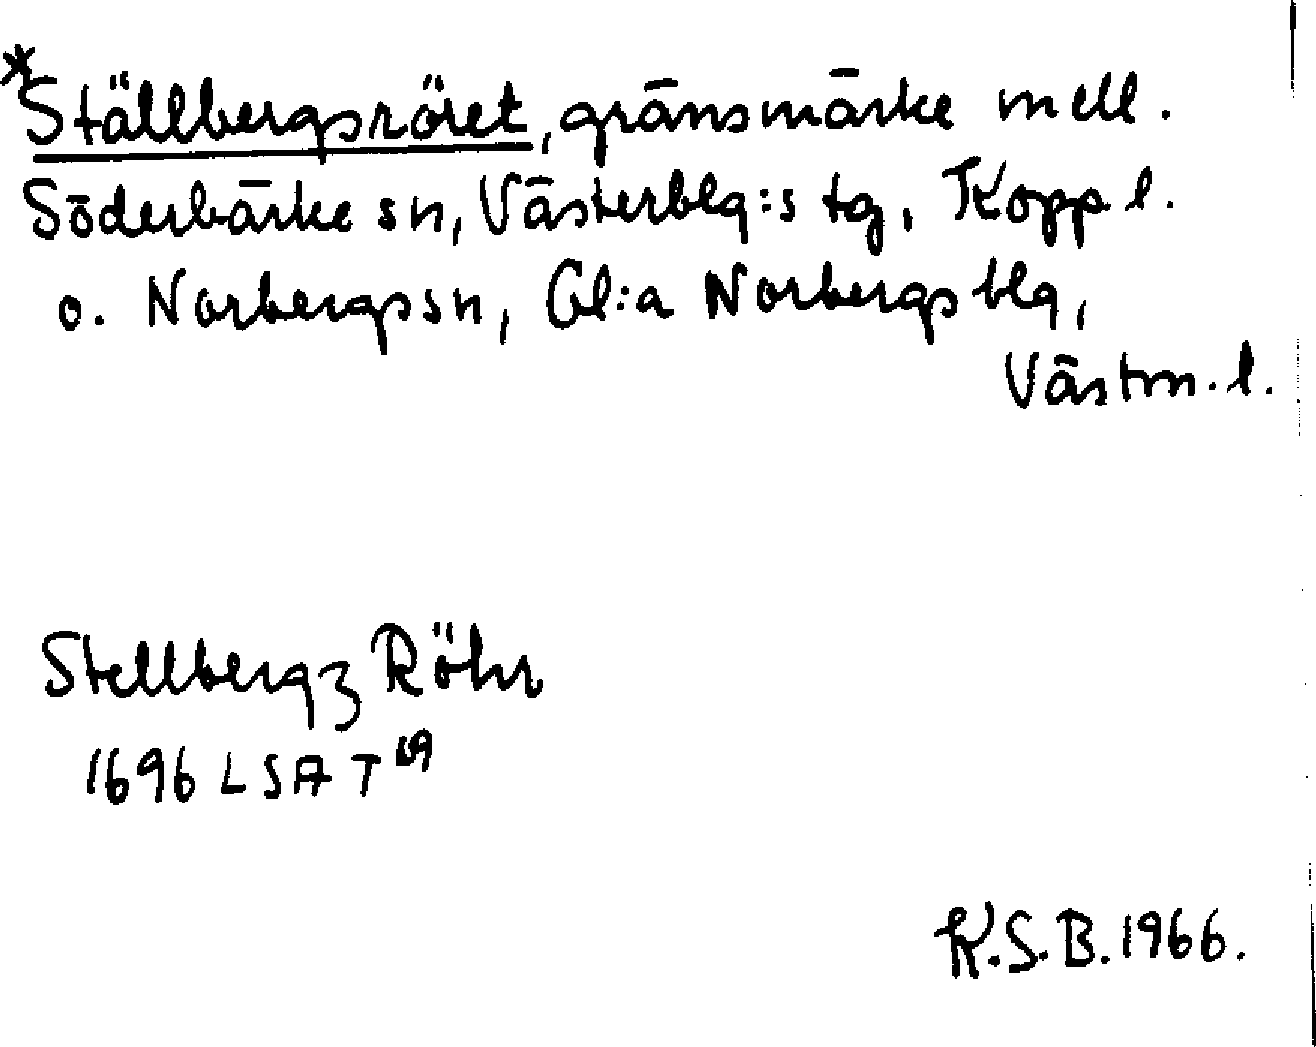 *Ställbergsröret, gränsmärke mell.
Söderbärke sn, Västerblg:s tg, Kopp l.
o. Norbergs sn, Gl:a Norbergs blg,
Västm. l.
Stellbergz Röhr
1696 LSA T 69
K.S.B. 1966.